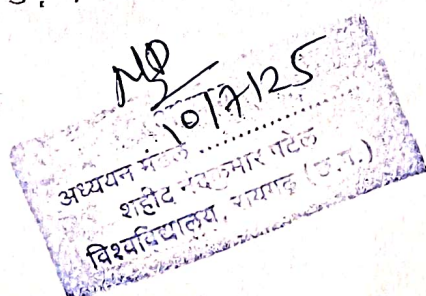 10/7/25
अध्ययन मंडल ..................
शहीद नंदकुमार पटेल
विश्वविद्यालय, रायगढ़ (छ.ग.)